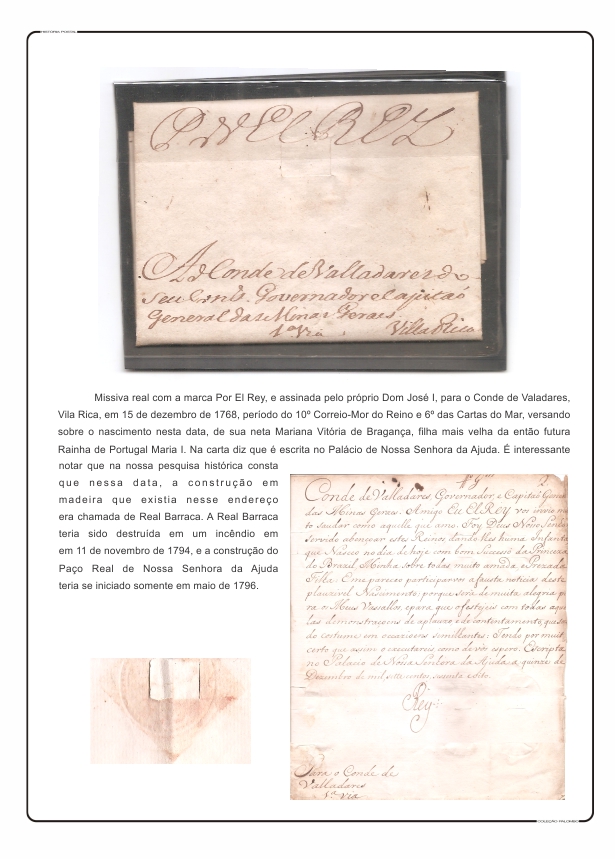 HISTÓRIA POSTAL
P. N El REZ
Ao Conde de Valladares do
seu Cons. Governador e Capitaó
General das Minas Geraes.
1ª Via Villa Rica
Missiva real com a marca Por El Rey, e assinada pelo próprio Dom José I, para o Conde de Valadares,
Vila Rica, em 15 de dezembro de 1768, período do 10º Correio-Mor do Reino e 6º das Cartas do Mar, versando
sobre o nascimento nesta data, de sua neta Mariana Vitória de Bragança, filha mais velha da então futura
Rainha de Portugal Maria I. Na carta diz que é escrita no Palácio de Nossa Senhora da Ajuda. É interessante
notar que na nossa pesquisa histórica consta
que nessa data, a construção em
madeira que existia nesse endereço
era chamada de Real Barraca. A Real Barraca
teria sido destruída em um incêndio em
em 11 de novembro de 1794, e a construção do
Paço Real de Nossa Senhora da Ajuda
teria se iniciado somente em maio de 1796.
Conde de Valladares, Governador, e Capitaó General
das Minas Geraes. Amigo Eu ElREY vos invio mui
to saudar como aquelle que amo. Foy Deus Nosso Senhor
servido abençoar estes Reinos, dandolhes huma Infanta
que Nasceo no dia de hoje com bom Successo da Princeza
do Brazil Minha sobre todas muito amada e Prezada
Filha. E me pareceo participarvos a fausta noticia deste
plauzivel Nascimento; porque será de muita alegria pa
ra os Meus Vassallos, e para que o festejeis com todas aquel
las demonstraçoens de aplauzo, e de contentamento, que são
do costume em occazioens semilhantes: Tendo por muito
certo que assim o executareis como de vós espero. Escripta
no Palacio de Nossa Senhora da Ajuda a quinze de
Dezembro de mil sette centos sessenta e oito.
Rey
Para o Conde de
Valladares
1ª Via
COLEÇÃO PALOMBO